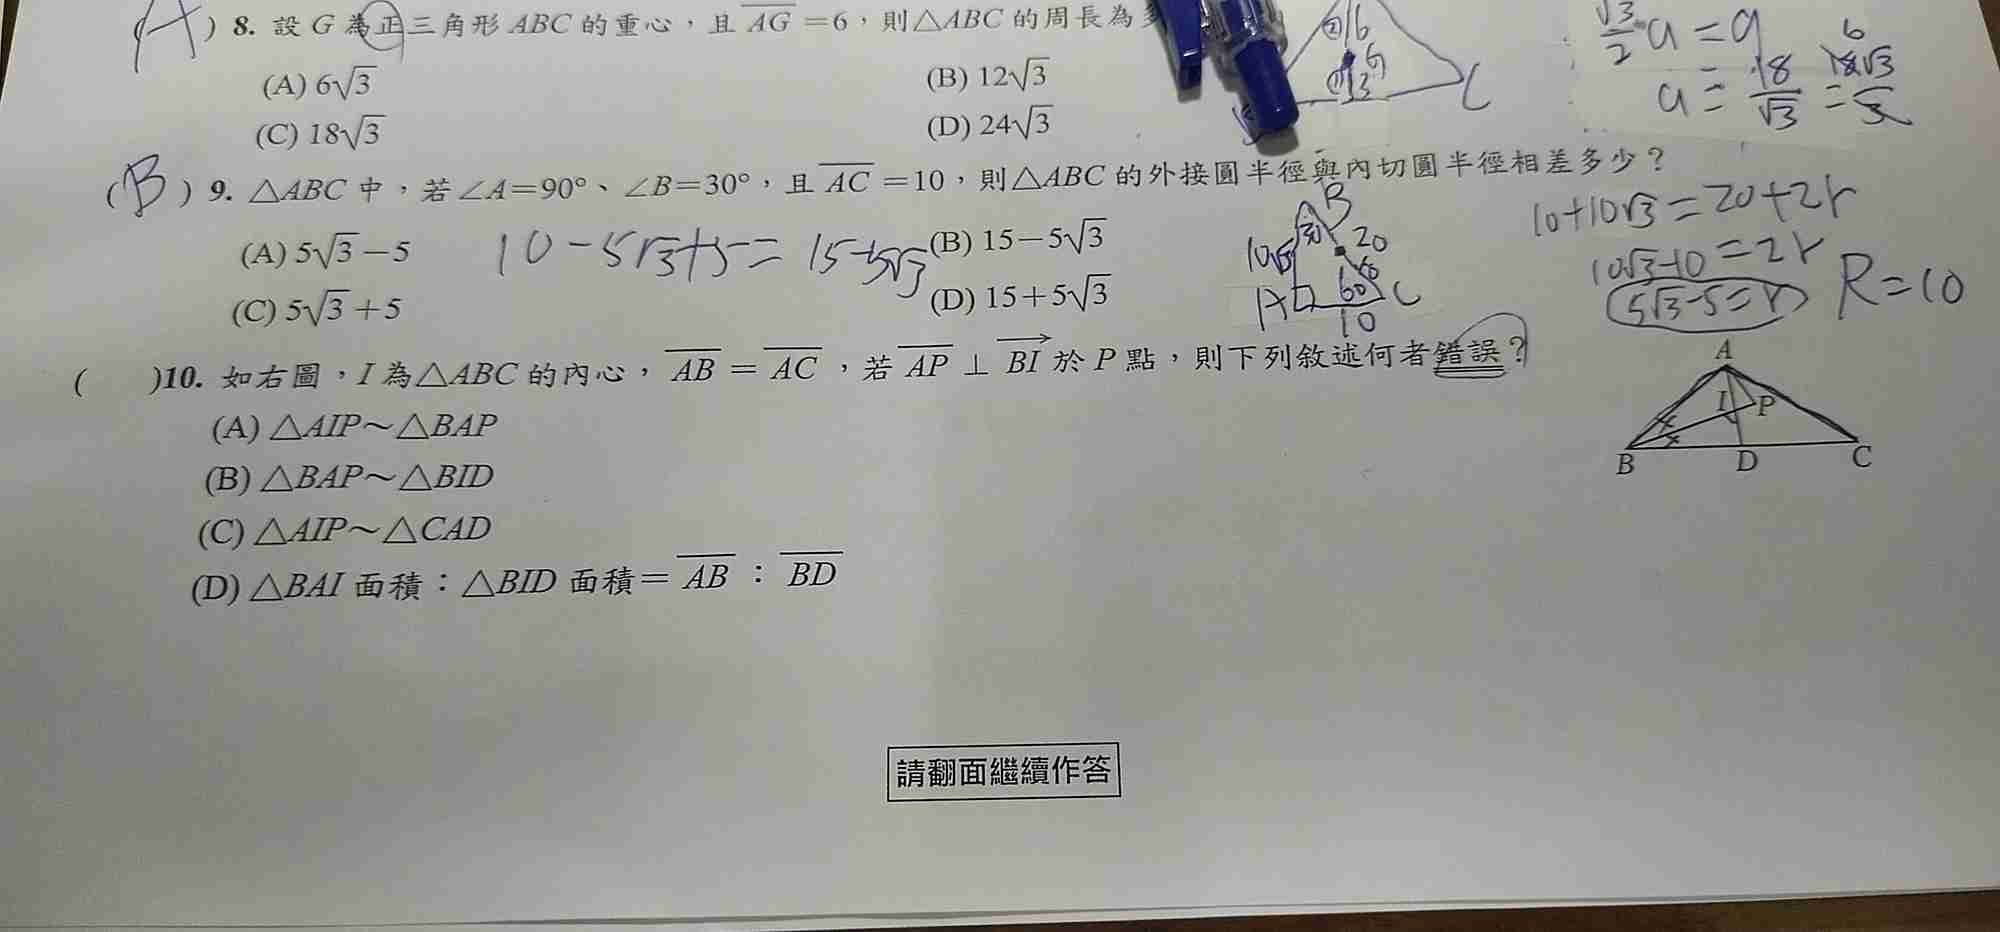 (A) 8. 設 G 為正三角形 ABC 的重心，且 AG =6，則△ABC 的周長為
(A) 6√3
(B) 12√3
(C) 18√3
(D) 24√3
②6
①3
9
C
√3/2 a = 9
a = 18/√3 =
6
18√3/3
(B) 9. △ABC 中，若∠A=90°、∠B=30°，且 AC =10，則△ABC 的外接圓半徑與內切圓半徑相差多少？
(A) 5√3-5
(B) 15-5√3
(C) 5√3+5
(D) 15+5√3
10-5√3+5= 15-5√3
B
30
10√3
20
A
60
C
10
10+10√3=20+2r
10√3-10=2r
5√3-5=r
R=10
( )10. 如右圖，I 為△ABC 的內心，AB = AC，若 AP ⊥ BI 於 P 點，則下列敘述何者錯誤？
(A) △AIP～△BAP
(B) △BAP～△BID
(C) △AIP～△CAD
(D) △BAI 面積：△BID 面積= AB ： BD
A
I P
B D C
請翻面繼續作答